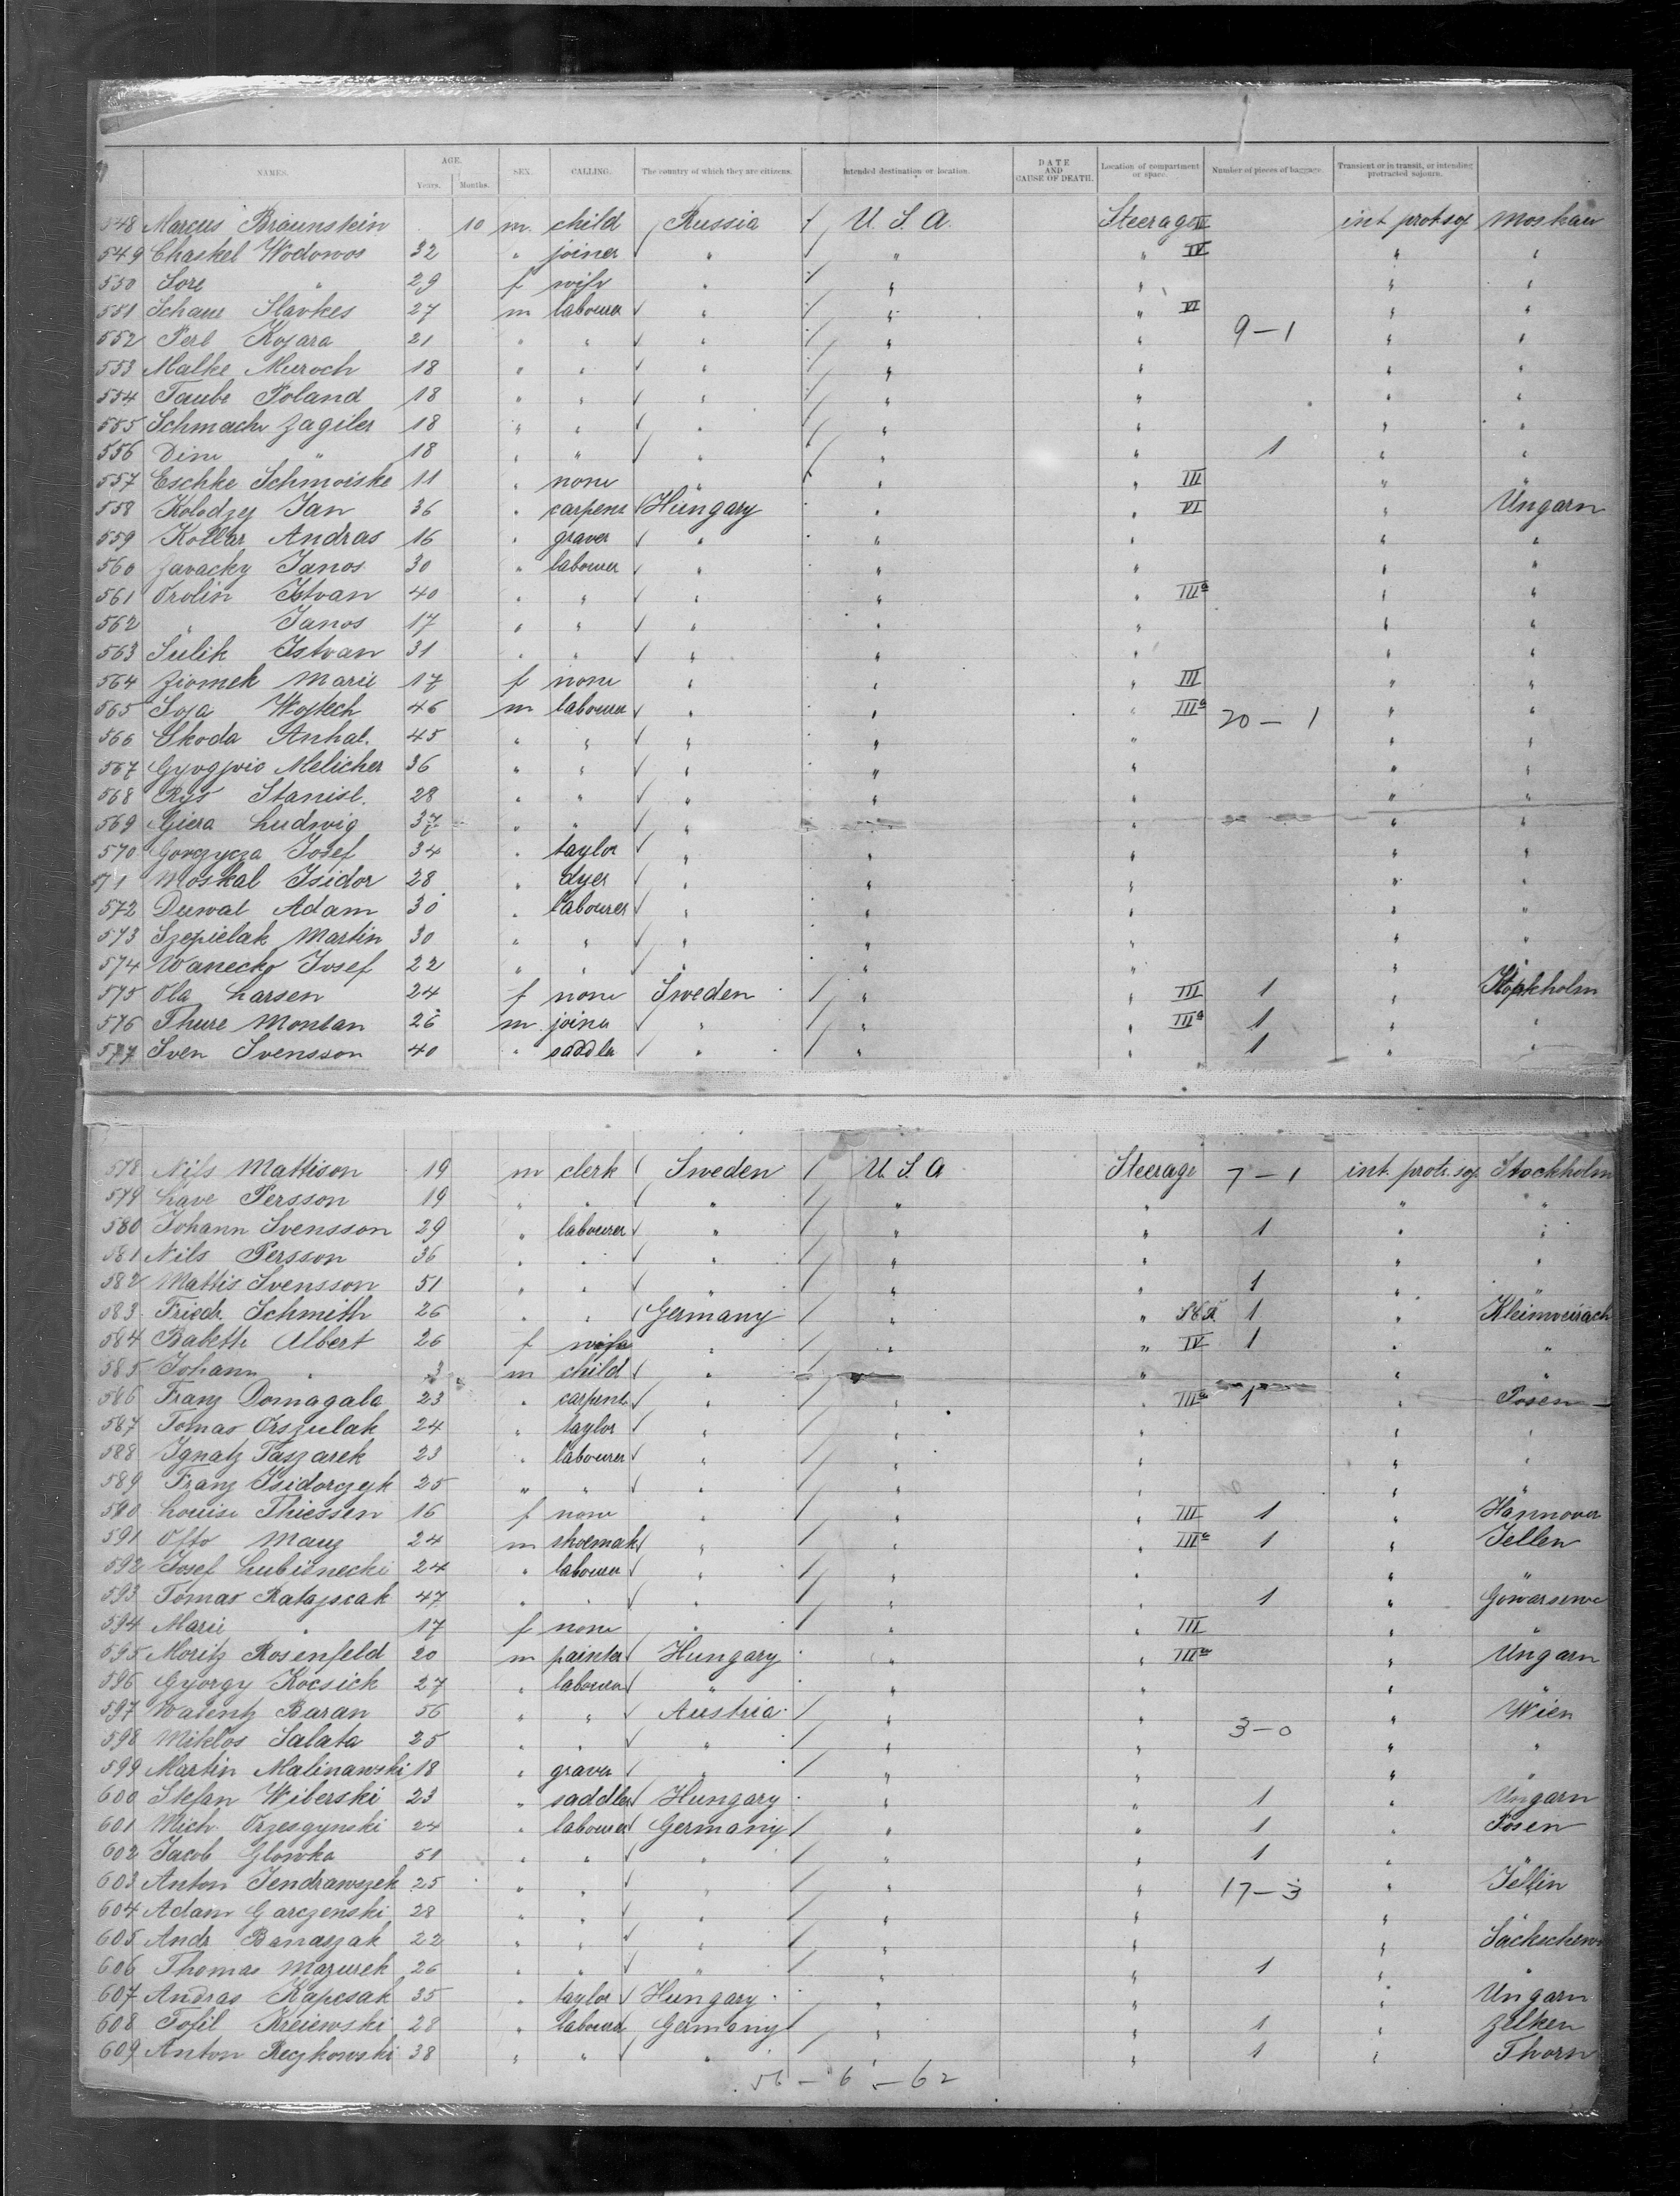 NAMES. AGE. Years. Months. SEX. CALLING. The country of which they are citizens. Intended destination or location. DATE AND CAUSE OF DEATH. Location of compartment or space. Number of pieces of baggage. Transient or in transit, or intending protracted sojourn.
548 Marcus Braunstein 10 m. child Russia U. S. A. Steerage IV int. prot. soj. Moskau
549 Chaskel Wodowos 32 " joiner " " " IV " "
550 Sore " 29 f wife " " " " "
551 Schaue Slavkes 27 m labourer " " " VI " "
552 Perl Kojara 21 " " " " " 9-1 " "
553 Malke Muroch 18 " " " " " " "
554 Taube Poland 18 " " " " " " "
555 Schmache Zagiler 18 " " " " " " "
556 Dine " 18 " " " " " 1 " "
557 Eschke Schmoiske 11 " none " " " III " "
558 Kolodzey Jan 36 " carpenr Hungary " " VI " Ungarn
559 Kollar Andras 16 " graver " " " " "
560 Zavacky Janos 30 " labourer " " " " "
561 Orolin Istvan 40 " " " " " IIIa " "
562 " Janos 17 " " " " " " "
563 Sulik Istvan 31 " " " " " " "
564 Ziomek Marie 17 f none " " " III " "
565 Soja Wojtech 46 m labourer " " " IIIa 20-1 " "
566 Skoda Anhal. 45 " " " " " " "
567 Melicher 36 " " " " " " "
568 Rys Stanisl. 28 " " " " " " "
569 Giera Ludwig 37 " " " " " "
570 Gorczycza Josef 34 " taylor " " " " "
571 Moskal Isidor 28 " dyer " " " " "
572 Duwal Adam 30 " labourer " " " " "
573 Szepielak Martin 30 " " " " " " "
574 Wanecko Josef 22 " " " " " " "
575 Ola Larsen 24 f none Sweden " " III 1 " Stockholm
576 Thure Montan 26 m joiner " " " IIIa 1 " "
577 Sven Svensson 40 " saddler " " " 1 " "
578 Nils Mattison 19 m clerk Sweden U. S. A Steerage 7-1 int. protr. soj. Stockholm
579 Lave Persson 19 " " " " " " "
580 Johann Svensson 29 " labourer " " " 1 " "
581 Nils Persson 36 " " " " " " "
582 Mattis Svensson 51 " " " " " 1 " "
583 Friedr. Schmith 26 " " Germany " " 1 " Kleinweirach
584 Babeth Albert 26 f wife " " " IV 1 " "
585 Johann " 3 m child " " " "
586 Franz Domagala 23 " carpent. " " " IIIa 1 " Posen
587 Tomas Orszulak 24 " taylor " " " " "
588 Ignatz Taszarek 23 " labourer " " " " "
589 Franz Isidorczyk 25 " " " " " " "
590 Louise Thiessen 16 f none " " " III 1 " Hannover
591 Otto Mauz 24 m shoemak. " " " IIIa 1 " Jellen
592 Josef Lubienecki 24 " labourer " " " " "
593 Tomas Ratajscak 47 " " " " " 1 " Gowarsewe
594 Marie " 17 f none " " " III "
595 Moritz Rosenfeld 20 m painter Hungary " " IIIa " Ungarn
596 Gyorgy Kocsick 27 " labourer " " " " "
597 Walentz Baran 56 " " Austria " " " Wien
598 Miklos Salata 25 " " " " " 3-0 " "
599 Martin Malinawski 18 " graver " " " " "
600 Stefan Wiberski 23 " saddler Hungary " " 1 " Ungarn
601 Mich. Orzesgynski 24 " labourer Germany " " 1 " Posen
602 Jacob Glowka 51 " " " " " 1 " "
603 Anton Jendrawszek 25 " " " " " 17-3 " Jellin
604 Adam Garczenski 28 " " " " " "
605 Andr. Banaszak 22 " " " " " "
606 Thomas Mazurek 26 " " " " " 1 " "
607 Andras Kapcsak 35 " taylor Hungary " " " Ungarn
608 Tofil Kreiewski 28 " labourer Germany " " 1 " Zelken
609 Anton Reczkowski 38 " " " " " 1 " Thorn
56 - 6 - 62